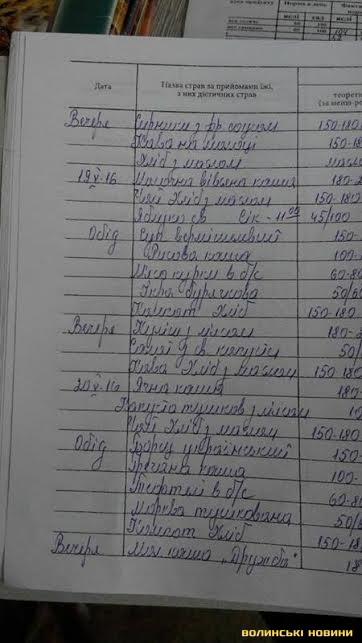 Норма в день
Дата
Назва страв за прийомами їжі,
з них дієтичних страв
теорети
(за меню-ро
Вечеря Сирники з фр соусом 150-180
Кава на молоці 150-18
Хліб з маслом масло
19 V-16 Молочна вівсяна каша 180-2
Чай Хліб з маслом 150-180
Яблуко св Сік - 11 00 45/100
Обід Суп вермішелевий 150-
Рисова каша 100-
Мясо курки в б/с 60-80
Ікра бурякова 50/60
Компот Хліб 150-180
Вечеря з мясом 180-2
Салат з св капусти 50/
Кава Хліб з маслом 150-180
20 V-16 Ячна каша 180-
Капуста тушков з мясом
Чай Хліб з маслом 150-180
Обід Борщ український 150-
Гречана каша 100-
Тефтелі в б/с 60-80
Морква тушкована 50/6
Компот Хліб 150-18
Вечеря Мол каша „Дружба" 18
волинські новини